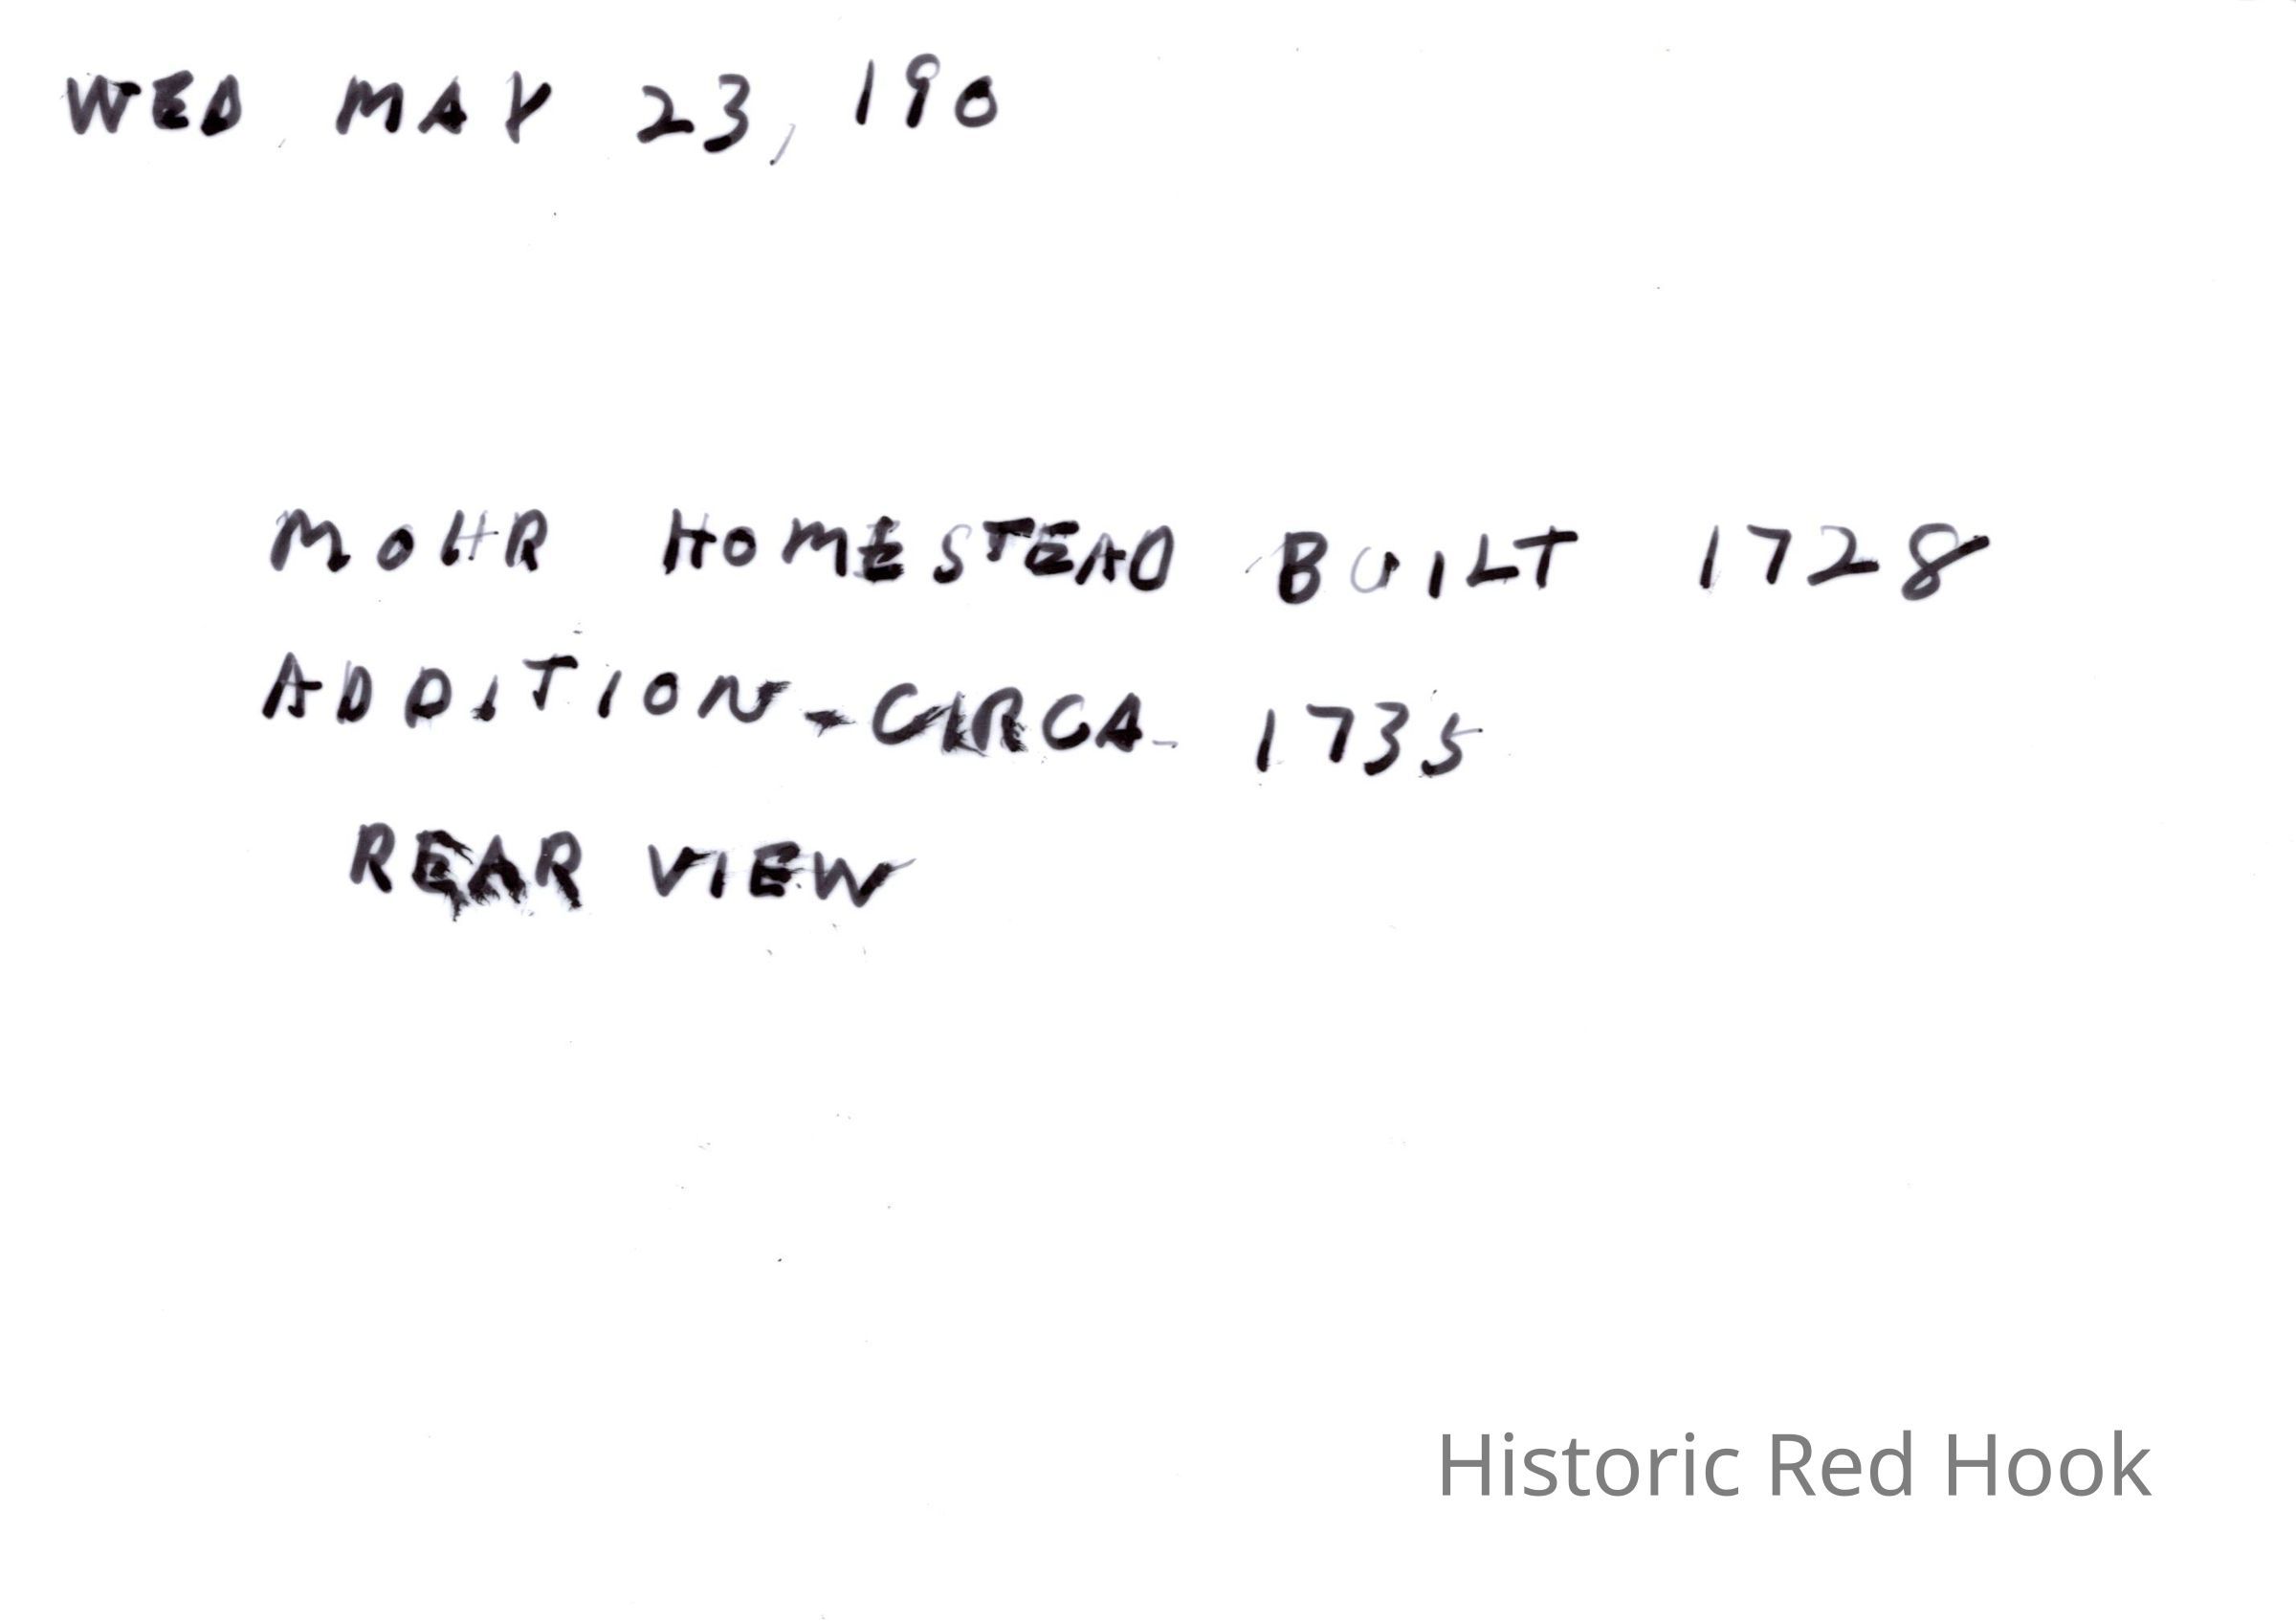 WED MAY 23, 190
MOHR HOMESTEAD BUILT 1728
ADDITION-CIRCA- 1735
REAR VIEW
Historic Red Hook